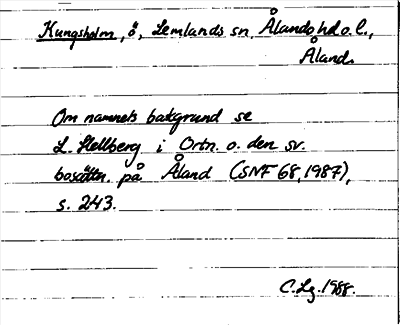 Kungsholm, ö, Lemlands sn, Ålands hd o. l.,
Åland.
Om namnets bakgrund se
L. Hellberg i Ortn. o. den sv.
bosättn. på Åland (SNF 68, 1987),
s. 243.
C. Lg. 1988.